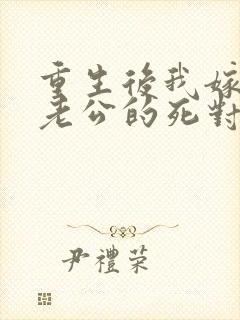 重生後我嫁
老公的死對
尹禮荣